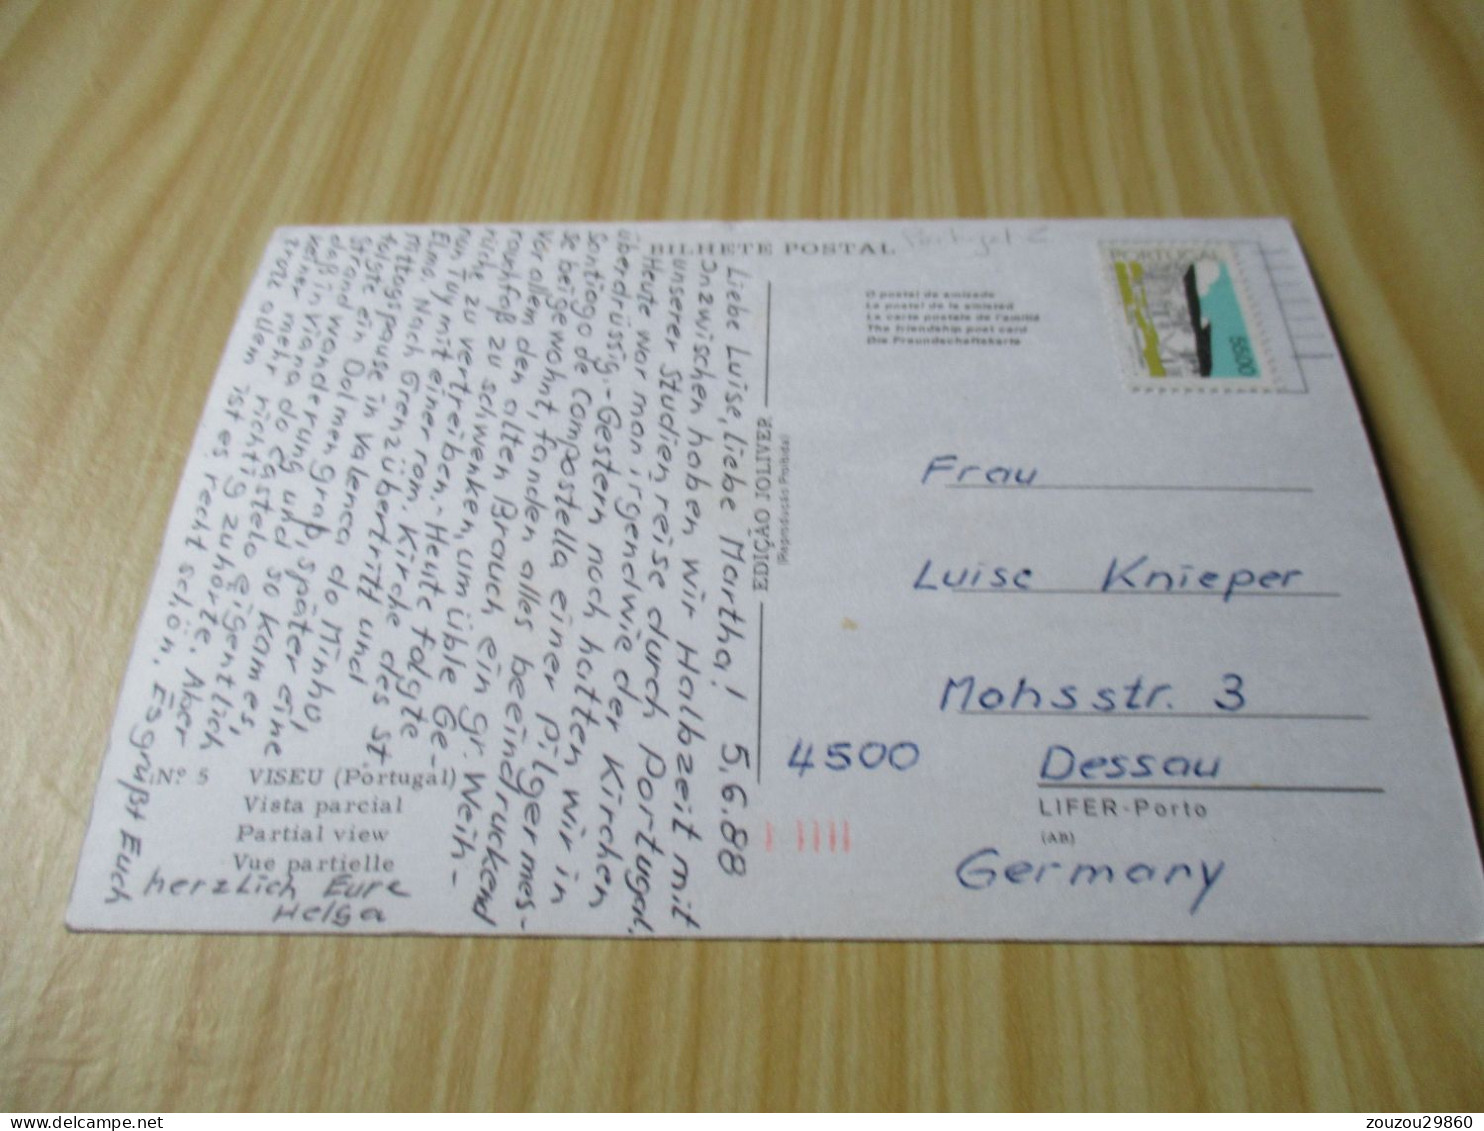 BILHETE POSTAL
Portugal
O postal de amizade
La postal de la amistad
La carte postale de l'amitié
The friendship post card
Die Freundschaftskarte
PORTUGAL
55$00
EDIÇÃO JOLIVER
(Reprodução Proibida)
Liebe Luise, liebe Martha! 5.6.88
Inzwischen haben wir Halbzeit mit
unserer Studienreise durch Portugal.
Heute war man irgendwie der Kirchen
überdrüssig. - Gestern noch hatten wir in
Santiago de Compostella einer Pilgermes-
se beigewohnt, fanden alles beeindruckend
Vor allem den alten Brauch ein gr. Weih-
rauchfaß zu schwenken, um üble Ge-
rüche zu vertreiben. - Heute folgte
nun Tuy mit einer rom. Kirche des St.
Elmo. Nach Grenzübertritt und
Mittagspause in Valenca do Minho,
folgte ein Dolmengrab, später eine
Strandwanderung und so kam es,
daß in Viana do Castelo eigentlich
keiner mehr richtig zuhörte. Aber
trotz allem ist es recht schön. Es grüßt Euch
herzlich Eure
Helga
Nº 5 VISEU (Portugal)
Vista parcial
Partial view
Vue partielle
Frau
Luise Knieper
Mohsstr. 3
4500 Dessau
LIFER-Porto
(AB)
Germany
zouzou29860